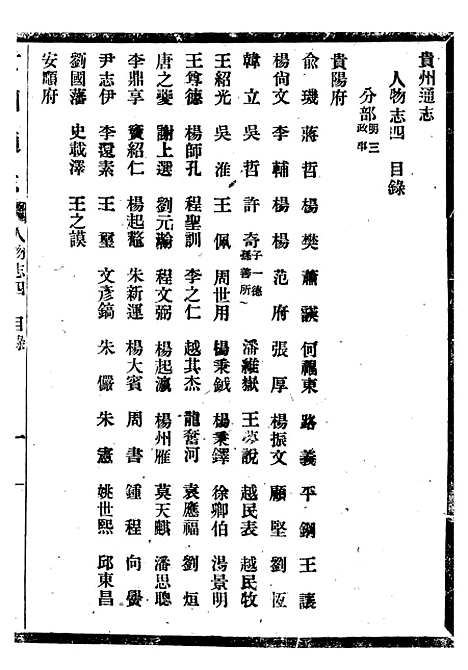 貴州通志
人物志四　目錄
分部明三政事
貴陽府
俞璣　蔣哲　楊樊　蕭諆　何禩東　路義　平鋼　王讓
楊尙文　李輔　楊楊　范府　張厚　楊振文　顧堅　劉恆
韓立　吳哲　許奇子一德孫善所　潘維嶽　王夢說　越民表　越民牧
王紹光　吳淮　王佩　周世用　楊秉鉞　楊秉鐸　徐卿伯　湯景明
王尊德　楊師孔　程聖訓　李之仁　越其杰　龍奮河　袁應福　劉烜
唐之夔　謝上選　劉元瀚　程文弼　楊起瀛　楊州雁　莫天麒　潘思聰
李鼎享　竇紹仁　楊起鼇　朱新運　楊大賓　周書　鍾程　向嬰
尹志伊　李還素　王璽　文彥鎬　朱儼　朱憲　姚世熙　邱東昌
劉國藩　史載澤　王之謨
安順府
人物志四　目錄
一